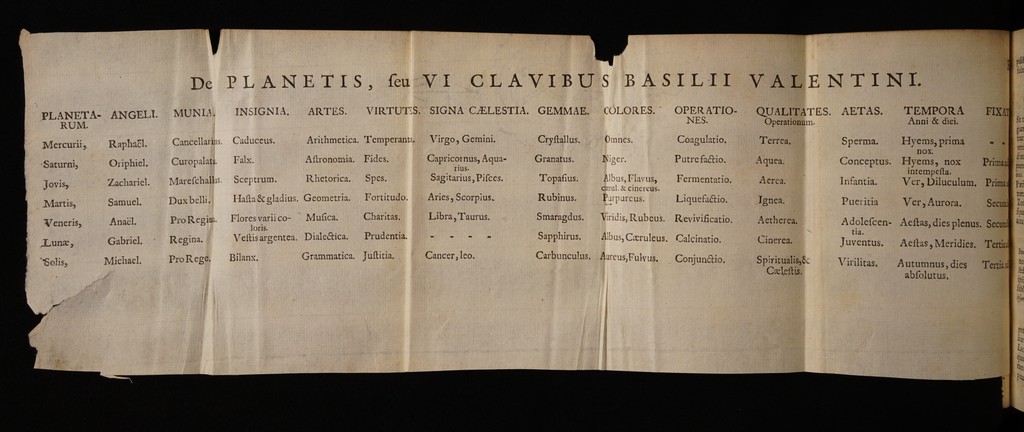 De PLANETIS, ſeu VI CLAVIBUS BASILII VALENTINI.
PLANETA-RUM. ANGELI. MUNIA. INSIGNIA. ARTES. VIRTUTES. SIGNA CÆLESTIA. GEMMAE. COLORES. OPERATIO-NES. QUALITATES. Operationum. AETAS. TEMPORA Anni & diei.
Mercurii, Raphaël. Cancellarius. Caduceus. Arithmetica. Temperantia. Virgo, Gemini. Cryſtallus. Omnes. Coagulatio. Terrea. Sperma. Hyems, prima nox. - -
Saturni, Oriphiel. Curopalata. Falx. Aſtronomia. Fides. Capricornus, Aqua-rius. Granatus. Niger. Putrefactio. Aquea. Conceptus. Hyems, nox intempeſta.
Jovis, Zachariel. Mareſchallus. Sceptrum. Rhetorica. Spes. Sagitarius, Piſces. Topaſius. Albus, Flavus, & cinereus. Fermentatio. Aerea. Infantia. Ver, Diluculum.
Martis, Samuel. Dux belli. Haſta & gladius. Geometria. Fortitudo. Aries, Scorpius. Rubinus. Purpureus. Liquefactio. Ignea. Pueritia Ver, Aurora.
Veneris, Anaël. Pro Regina. Flores varii co-loris. Muſica. Charitas. Libra, Taurus. Smaragdus. Viridis, Rubeus. Revivificatio. Aetherea. Adoleſcen-tia. Aeſtas, dies plenus.
Lunæ, Gabriel. Regina. Veſtis argentea. Dialectica. Prudentia. - - - - Sapphirus. Albus, Cæruleus. Calcinatio. Cinerea. Juventus. Aeſtas, Meridies.
Solis, Michael. Pro Rege. Bilanx. Grammatica. Juſtitia. Cancer, leo. Carbunculus. Aureus, Fulvus. Conjunctio. Spiritualis, & Cæleſtis. Virilitas. Autumnus, dies abſolutus.